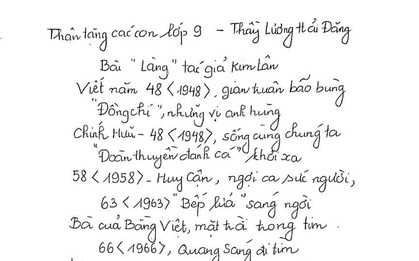 Thân tặng các con lớp 9 - Thầy Lương Hải Đăng
Bài "Làng" tác giả Kim Lân
Viết năm 48 <1948>, gian truân bão bùng
"Đồng chí", những vị anh hùng
Chính Hữu - 48 <1948>, sống cùng chúng ta
"Đoàn thuyền đánh cá" khơi xa
58 <1958> - Huy Cận, ngợi ca sức người,
63 <1963> "Bếp lửa" sáng ngời
Bà của Bằng Việt, mặt trời trong tim
66 <1966>, Quang Sáng đi tìm